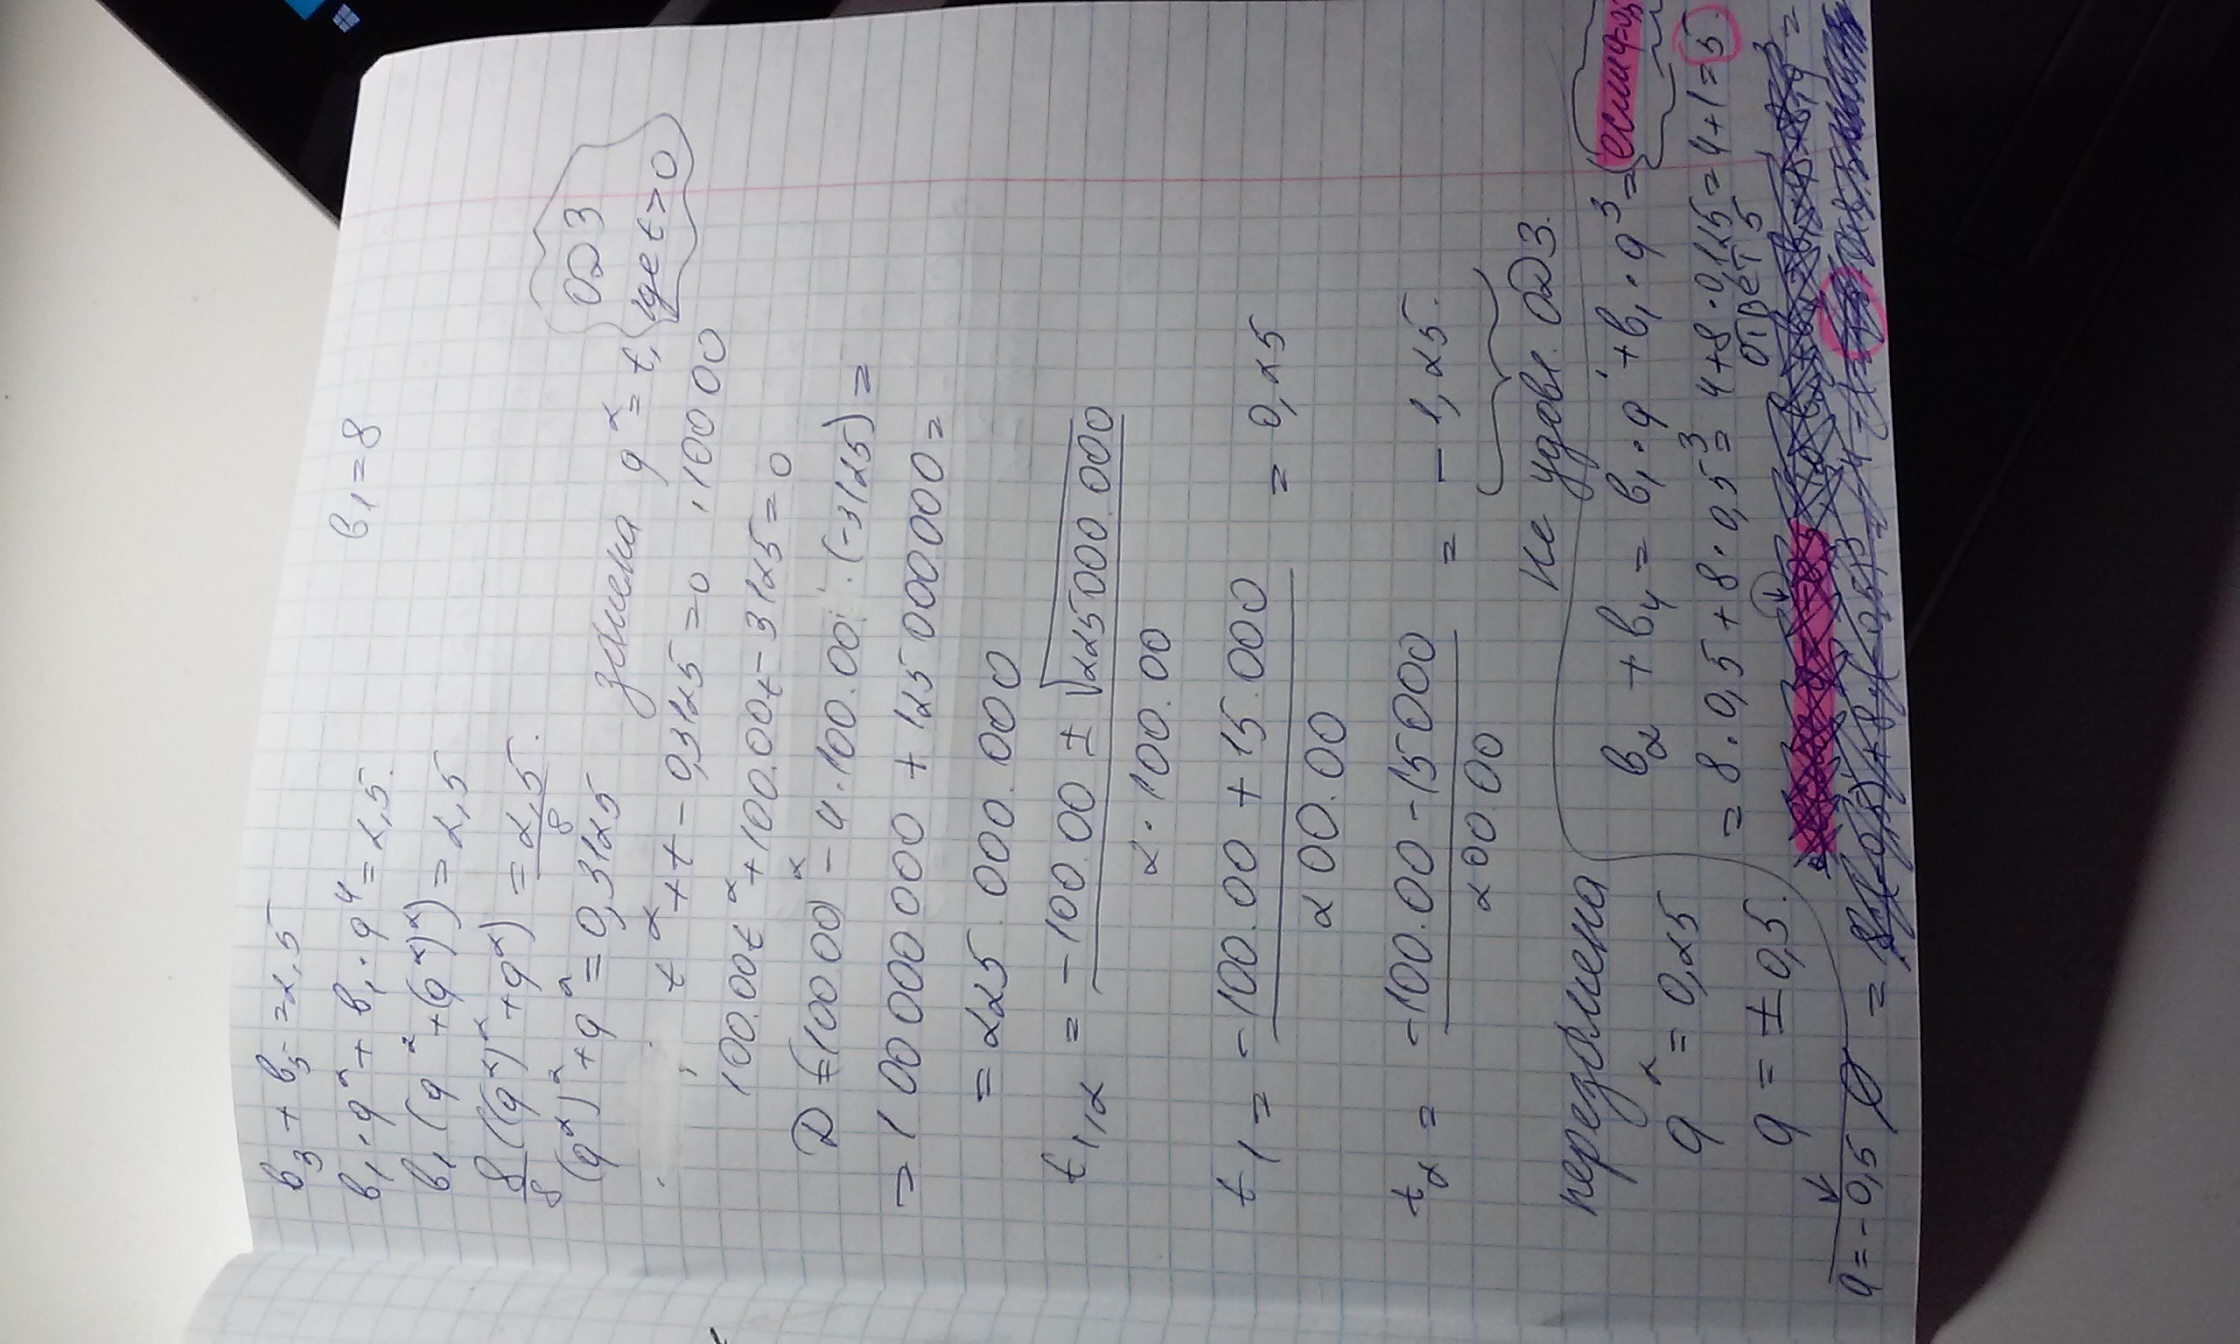 b₃ + b₅ = 2,5 b₁ = 8
b₁ · q² + b₁ · q⁴ = 2,5.
b₁ (q² + (q²)²) = 2,5
8/8 ((q²)² + q²) = 2,5/8.
(q²)² + q² = 0,3125
замена q² = t, где t > 0
ОДЗ
t² + t - 0,3125 = 0 · 10000
100.00t² + 100.00t - 3125 = 0
D = (10000)² - 4 · 100.00 · (-3125) =
= 100 000 000 + 125 000 000 =
= 225.000.000
t₁,₂ = (-100.00 ± √225000.000) / (2 · 100.00)
t₁ = (-100.00 + 15.000) / 200.00 = 0,25
t₂ = (-100.00 - 15000) / 200.00 = -1,25.
не удовл. ОДЗ.
перезамена
q² = 0,25
q = ± 0,5.
b₂ + b₄ = b₁ · q¹ + b₁ · q³ = если q=0,5
= 8 · 0,5 + 8 · 0,5³ = 4 + 8 · 0,125 = 4 + 1 = 5.
ответ 5
q = -0,5